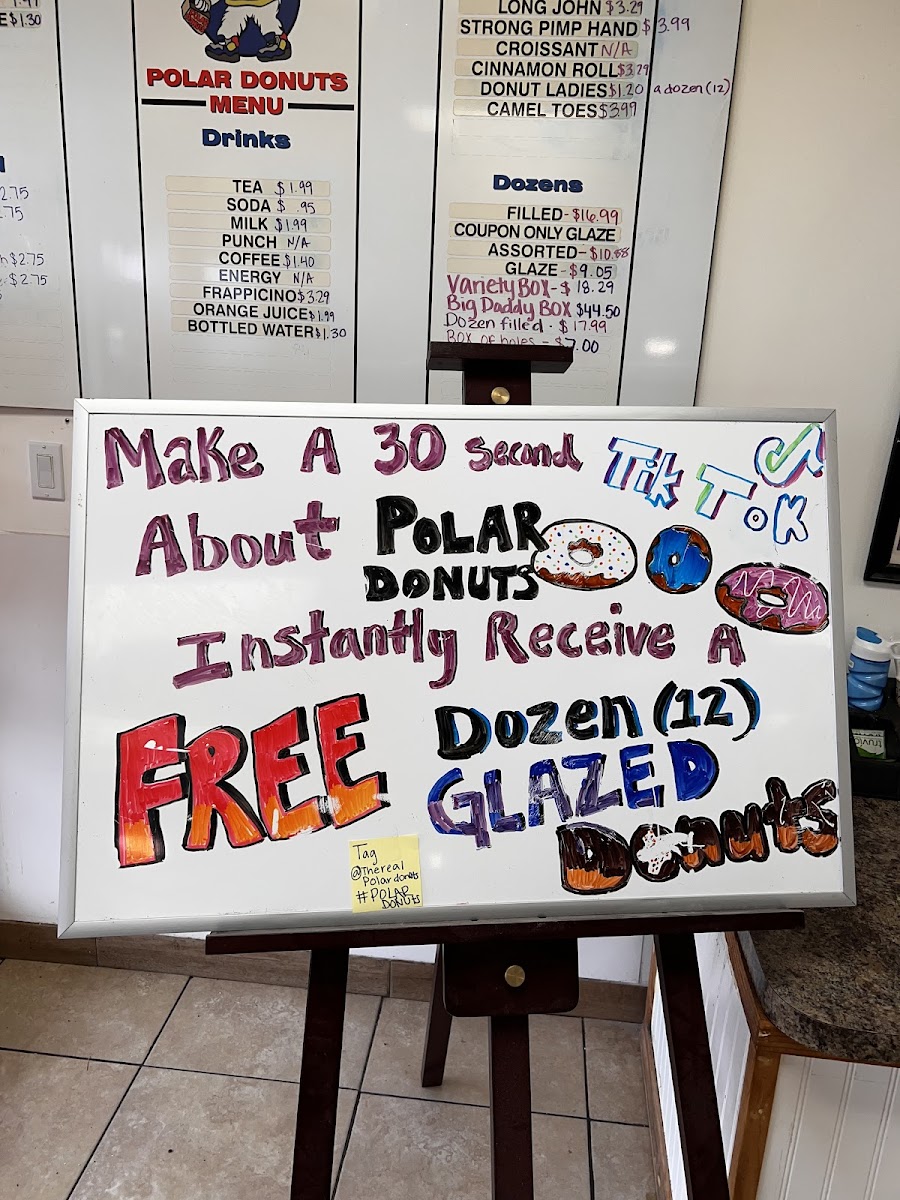 $1.30
$2.75
$2.75
POLAR DONUTS
MENU
Drinks
TEA $1.99
SODA $ .95
MILK $1.99
PUNCH N/A
COFFEE $1.40
ENERGY N/A
FRAPPICINO $3.29
ORANGE JUICE $1.99
BOTTLED WATER $1.30
LONG JOHN $3.29
STRONG PIMP HAND $3.99
CROISSANT N/A
CINNAMON ROLL $3.29
DONUT LADIES $1.20 a dozen (12)
CAMEL TOES $3.99
Dozens
FILLED - $16.99
COUPON ONLY GLAZE
ASSORTED - $10.58
GLAZE - $9.05
Variety Box - $18.29
Big Daddy BOX $44.50
Dozen filled - $17.99
Box of holes - $7.00
Make A 30 second TikToks
About POLAR
DONUTS
Instantly Receive A
FREE Dozen (12)
GLAZED
Donuts
Tag
@Thereal
Polardonuts
#POLAR
DONUTS
truvia